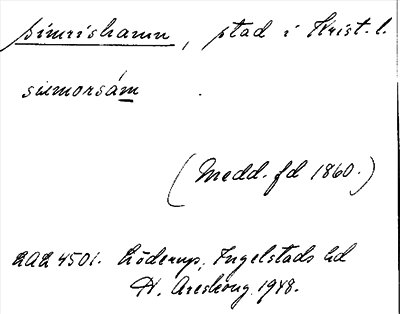 Simrishamn, stad i Krist. l.
simorsám .
(Medd. fd 1860.)
LAL 4501. Löderup, Ingelstads hd
H. Areskoug 1948.